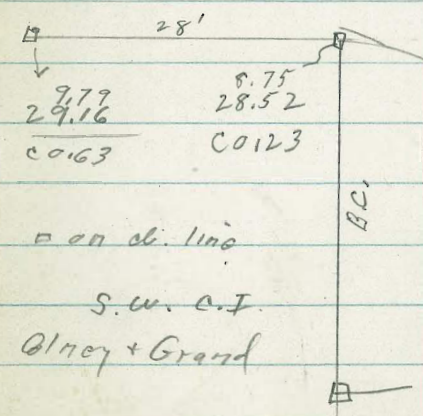 28'
9.79
29.16
C 0.63
8.75
28.52
C 0.23
B.C.
= on di. line
S.W. C.I.
Olney + Grand